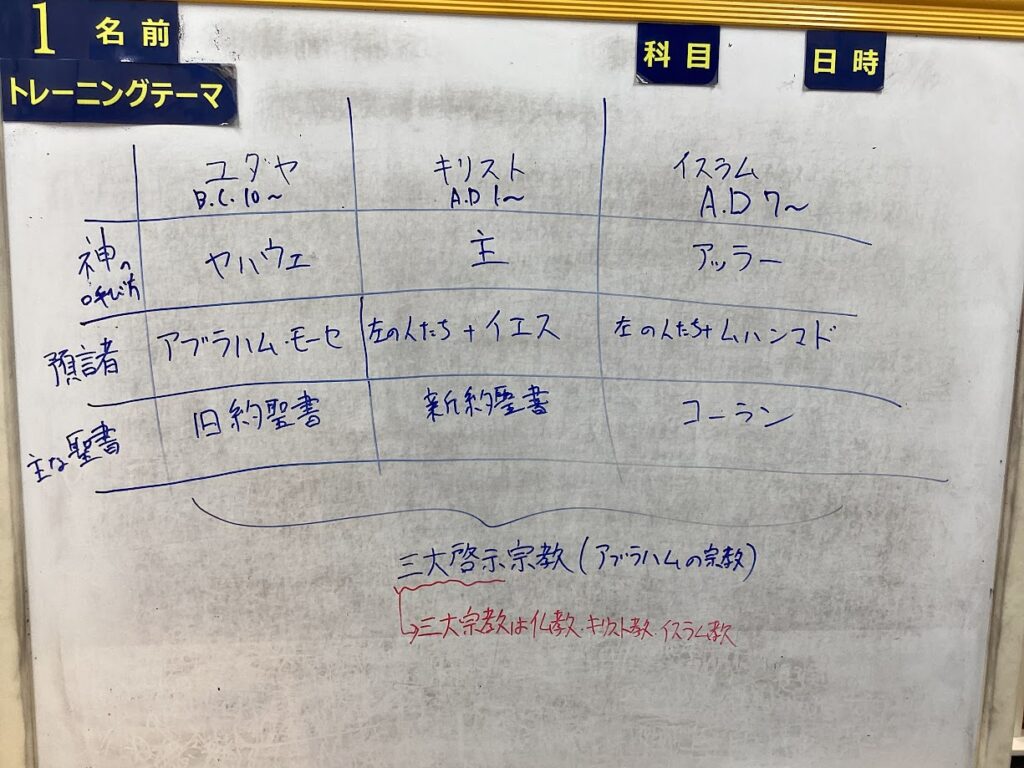 1 名前
科目
日時
トレーニングテーマ
ユダヤ キリスト イスラム
B.C.10～ A.D 1～ A.D 7～
神の呼び方 ヤハウェ 主 アッラー
預言者 アブラハム・モーセ 左の人たち+イエス 左の人たち+ムハンマド
主な聖書 旧約聖書 新約聖書 コーラン
三大啓示宗教(アブラハムの宗教)
→三大宗教は仏教・キリスト教・イスラム教